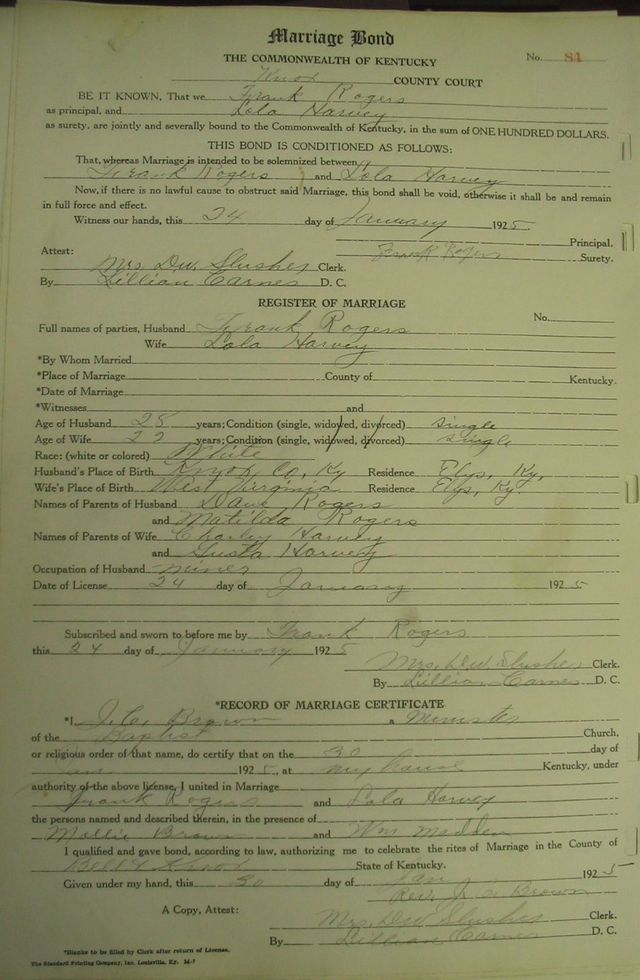 Marriage Bond
THE COMMONWEALTH OF KENTUCKY No. 84
Knox COUNTY COURT
BE IT KNOWN, That we Frank Rogers
as principal, and Lola Harvey
as surety, are jointly and severally bound to the Commonwealth of Kentucky, in the sum of ONE HUNDRED DOLLARS.
THIS BOND IS CONDITIONED AS FOLLOWS:
That, whereas Marriage is intended to be solemnized between
Frank Rogers and Lola Harvey
Now, if there is no lawful cause to obstruct said Marriage, this bond shall be void, otherwise it shall be and remain
in full force and effect.
Witness our hands, this 24 day of January 1925
Principal.
Attest: Frank Rogers Surety.
Mrs. Dw. Slusher Clerk.
By Lillian Carnes D. C.
REGISTER OF MARRIAGE
No.
Full names of parties, Husband Frank Rogers
Wife Lola Harvey
*By Whom Married
*Place of Marriage County of Kentucky.
*Date of Marriage
*Witnesses and
Age of Husband 25 years; Condition (single, widowed, divorced) single
Age of Wife 22 years; Condition (single, widowed, divorced) single
Race: (white or colored) White
Husband's Place of Birth Knox Co, Ky Residence Elys, Ky,
Wife's Place of Birth West Virginia Residence Elys, Ky.
Names of Parents of Husband Dave Rogers
and Matilda Rogers
Names of Parents of Wife Charley Harvey
and Susta Harvey
Occupation of Husband miner
Date of License 24 day of January 1925
Subscribed and sworn to before me by Frank Rogers
this 24 day of January 1925
Mrs. Dw Slusher Clerk.
By Lillian Carnes D. C.
*RECORD OF MARRIAGE CERTIFICATE
*I, J. C. Brown a Minister
of the Baptist Church,
or religious order of that name, do certify that on the 30 day of
Jan 1925, at my house Kentucky, under
authority of the above license, I united in Marriage
Frank Rogers and Lola Harvey
the persons named and described therein, in the presence of
Mollie Brown and Wm Madden
I qualified and gave bond, according to law, authorizing me to celebrate the rites of Marriage in the County of
Bell & Knox State of Kentucky.
Given under my hand, this 30 day of Jan 1925
Rev. J. C. Brown
A Copy, Attest: Mrs. Dw Slusher Clerk.
By Lillian Carnes D. C.
*Blanks to be filled by Clerk after return of License.
The Standard Printing Company, Inc. Louisville, Ky.